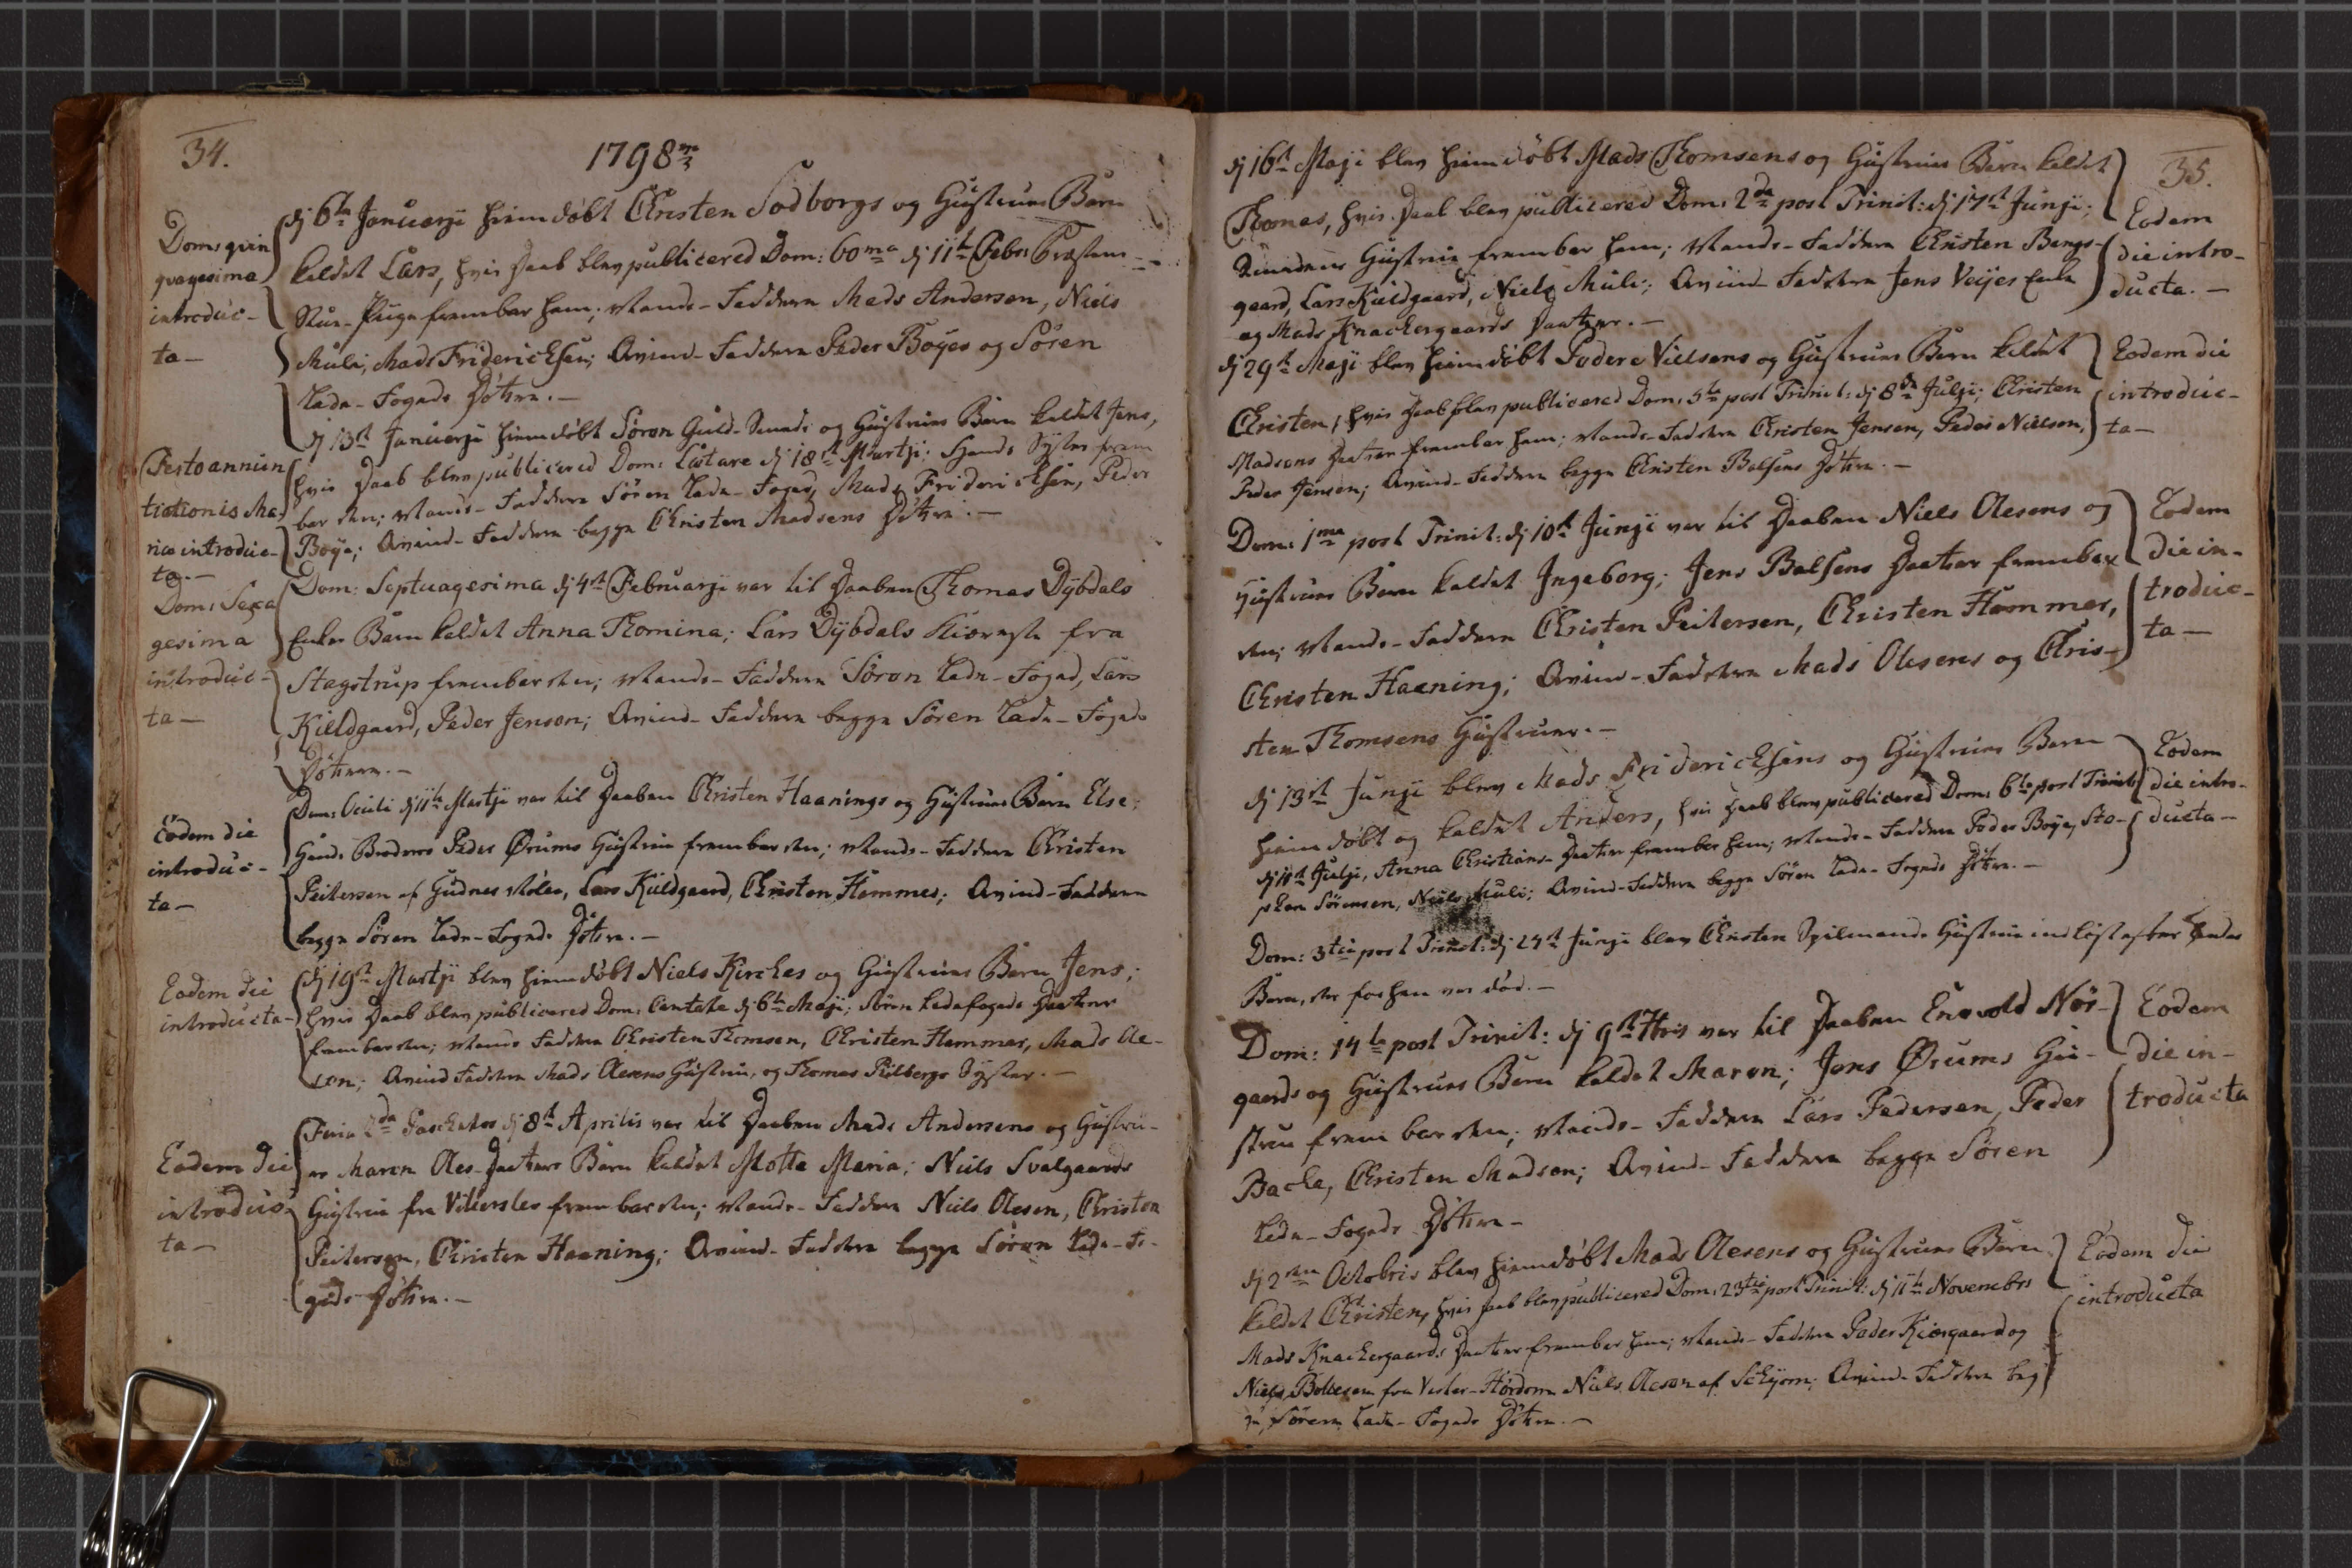 34.
1798
Dom: qvin
qvagesima
introduc-
ta —
dj 6te Januarji hiemdøbt Christen Sodborgs og Hustrues Barn
kaldet Lars, hvis Daab blev publicered Dom: 60ma dj 11te Febr: Præstens
Stue-Piige frembar ham; Mands-Faddere Mads Andersen, Niels
Muli, Mads Friderichsen; Qvind-Faddere Peder Boÿes og Søren
Lade-Fogeds Døttre. —
Festo annun
tiationis Ma-
riæ introduc-
ta. —
dj 13de Januarji hiemdøbt Søren Guld-Smeds og Hustrues Barn kaldet Jens,
hvis Daab blev publicered Dom: Lætare dj 18de Martji; Hands Syster frem
bar den; Mands-Faddere Søren Lade-Foged, Mads Friderichsen, Peder
Boÿe; Qvind-Faddere begge Christen Madsens Døttre. —
Dom: Sexa
gesima
introduc-
ta —
Dom: Septuagesima dj 4de Februarji var til Daaben Thomas Dÿbdals
Enkes Barn kaldet Anna Thomina; Lars Dÿbdals Kiæreste fra
Stagstrup frembar den; Mands-Faddere Søren Lade-Foged, Lars
Kieldgaard, Peder Jensen; Qvind-Faddere begge Søren Lade-Fogeds
Døttre. —
Eodem die
introduc-
ta —
Dom: Oculi dj 11te Martji var til Daaben Christen Haanings og Hustrues Barn Else;
Hands Broders Peder Ørums Hustrue frembar den; Mands-Faddere Christen
Peitersen af Gudnes Mølle, Lars Kieldgaard, Christen Hammer; Qvind-Faddere
begge Søren Lade-Fogeds Døttre. —
Eodem die
introducta —
dj 19de Martji blev hiemdøbt Niels Kirckes og Hustrues Barn Jens;
hvis Daab blev publicered Dom: Cantate dj 6te Maji; Søren Ladefogeds Datter
frembar den; Mands Faddere Christen Thomsen, Christen Hammer, Mads Ole-
sen; Qvind Faddere Mads Olesens Hustrue, og Thomas Pilbergs Syster. —
Eodem die
introduc-
ta —
Feria 2da Paschatos dj 8de Aprilis var til Daaben Mads Andersens og Hustru-
es Maren Oles-Datters Barn kaldet Motta Maria; Niels Svalgaards
Hustrue fra Villerslev frembar den; Mands-Faddere Niels Olesen, Christen
Peitersen, Christen Haaning; Qvind-Faddere begge Søren Lade-Fo-
geds Døttre. —
35.
dj 16de Maji blev hiemdøbt Mads Thomsens og Hustrues Barn kaldet
Thomas, hvis Daab blev publicered Dom: 2da post Trinit: dj 17de Junji;
Hustrue frembar ham; Mands-Faddere Christen Bangs-
gaard, Lars Kieldgaard, Niels Muli; Qvind-Faddere Jens Veÿes Enke
og Mads Knackergaards Daatter. —
Eodem
die intro-
ducta. —
dj 29de Maji blev hiemdøbt Peders Nielsens og Hustrues Barn kaldet
Christen, hvis Daab blev publicered Dom: 5te post Trinit: dj 8de Julji; Christen
Madsens Daatter frembar ham; Mands-Faddere Christen Jensen, Peder Nielsen,
Peder Jensen; Qvind-Faddere begge Christen Balsens Døttre. —
Eodem die
introduc-
ta —
Dom: 1ma post Trinit: dj 10de Junji var til Daaben Niels Olesens og
Hustrues Barn kaldet Ingeborg; Jens Balsens Daatter frembar
den; Mands-Faddere Christen Peitersen, Christen Hammer,
Christen Haaning; Qvind-Faddere Mads Olesens og Chris-
sten Thomsens Hustruer. —
Eodem
die in-
troduc-
ta —
dj 13de Junji blev Mads Friderichsens og Hustrues Barn
hiemdøbt og kaldet Anders, hvis Daab blev publicered Dom: 6te post Trinit:
dj 15de Julji, Anna Christians-Daatter frembar ham; Mands-Faddere Peder Boÿe, Ste-
phen Sörensen, Niels Muli; Qvind-Faddere begge Søren Lade-Fogeds Døttre. —
Eodem
die intro-
ducta —
Dom: 3tia post Trinit: dj 24de Junji blev Christen Spilmands Hustrue indleedt efter
Barn, der for hen var død. —
Dom: 14te post Trinit: dj 9de 7bris var til Daaben Envold Nør-
gaards og Hustrues Barn kaldet Maren; Jens Ørums Hu-
strue frembar den; Mands-Faddere Lars Pedersen, Peder
Backe, Christen Madsen; Qvind-Faddere begge Søren
Lade-Fogeds Døttre —
Eodem
die in-
troducta
dj 2den Octobris blev hiemdøbt Mads Olesens og Hustrues Barn
kaldet Christen, hvis Daab blev publicered Dom: 23tia post Trinit: dj 11te Novembr:
Mads Knackergaards Daatter frembar ham; Mands-Faddere Peder Kiærgaard og
Niels Bollesen fra Vester-Hørdum Niels Olesen af Schÿom; Qvind-Faddere beg
ge Søren Lade-Fogeds Døttre. —
Eodem die
introducta